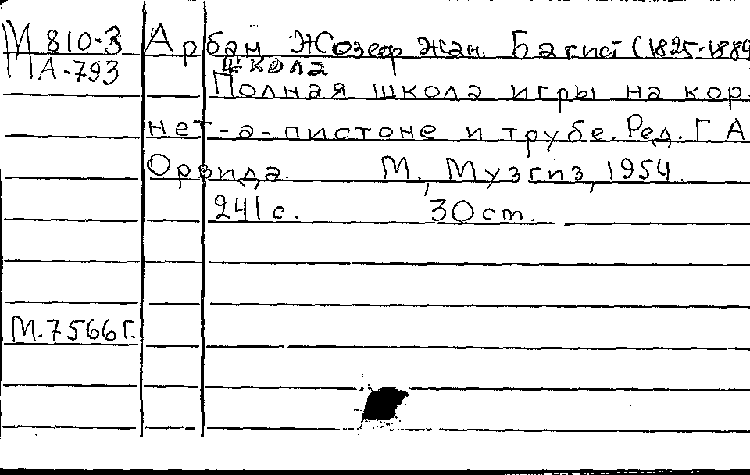 М 810-3 Арбан Жозеф Жан Батист (1825-1889
МА-793 школа
Полная школа игры на кор-
нет-а-пистоне и трубе. Ред. Г. А
Орвида М., Музгиз, 1954.
241 с. 30 cm.
М.7566Г.